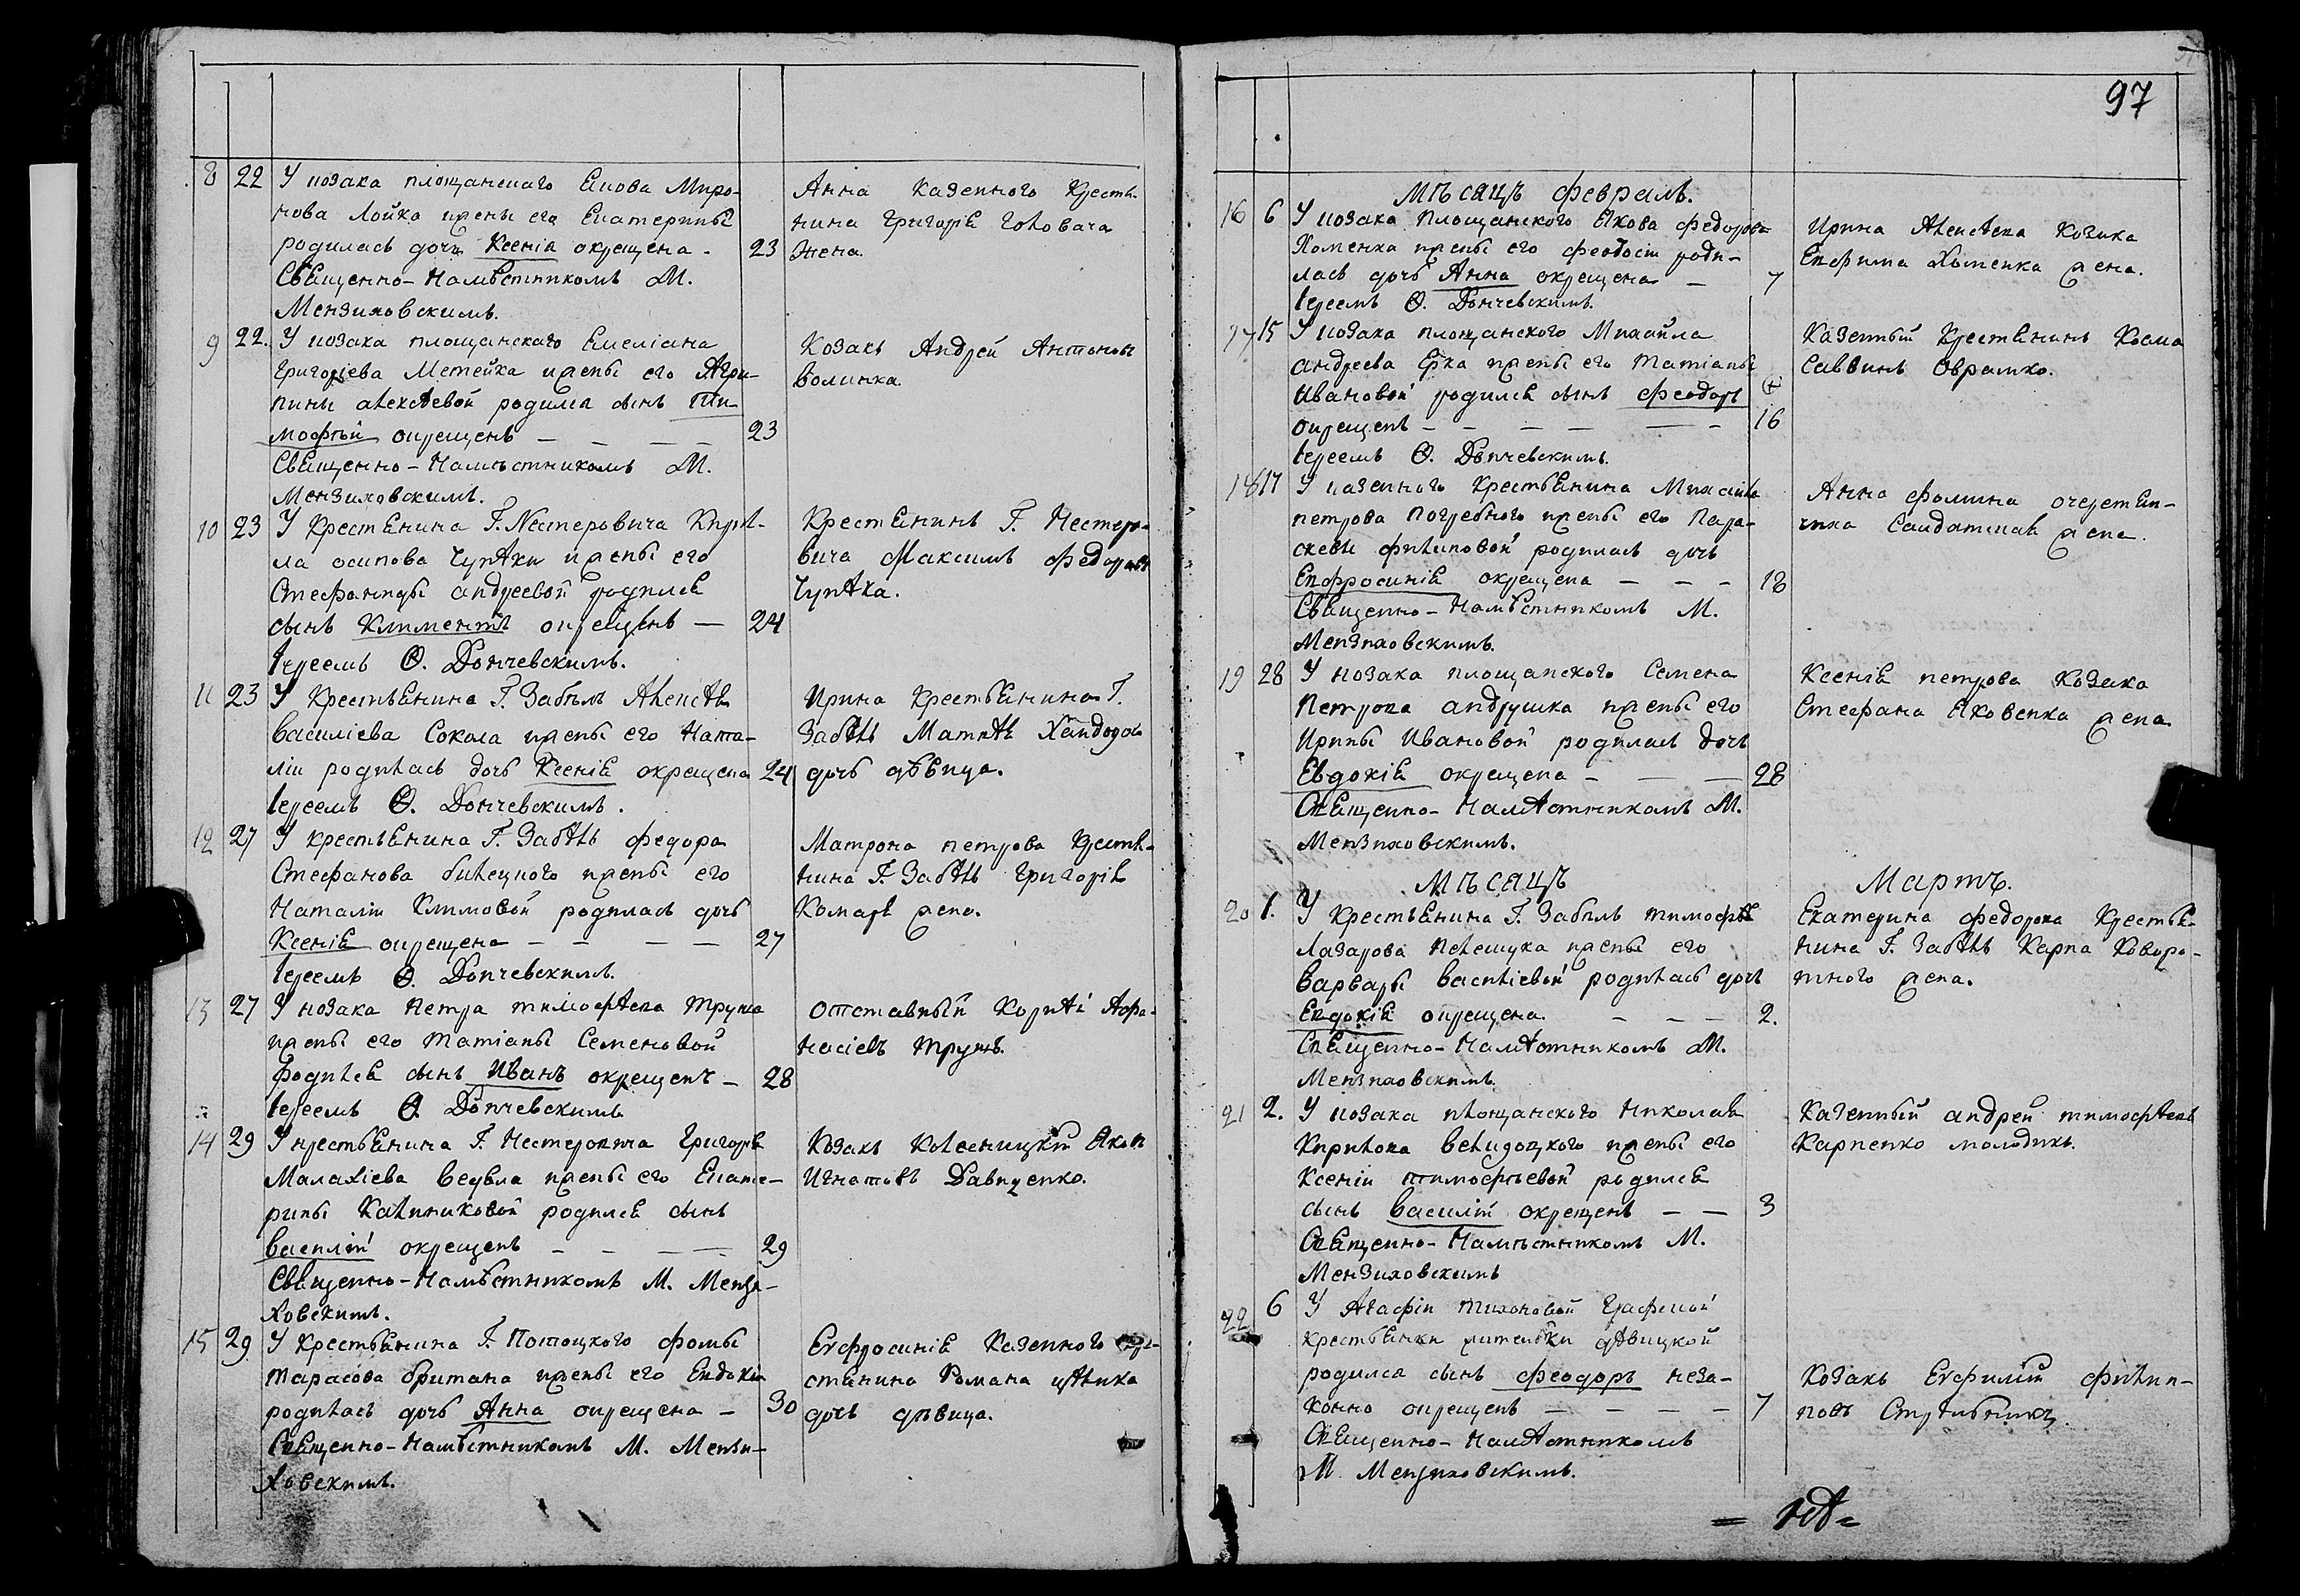 8 22 У козака площанскаго Якова Миро-
нова Лойка жены его Екатерины
родилась дочь Ксенія окрещена - 23
Священно-Намѣстникомъ М.
Мензиховскимъ.
Анна Казенного Крестья-
нина Григорія Головача
жена.
9 22. У козака площанскаго Емеліана
Григоріева Метейка жены его Агри-
пины алексѣевой родился сынъ Ти-
мофѣй окрещенъ - - - - 23
Священно-Намѣстникомъ М.
Мензиховскимъ.
Козакъ Андрей Антоновъ
волинка.
10 23 У Крестянина Г. Нестеровича Кирил-
ла осипова Чупѣки жены его
Стефаниды андреевой родился
сынъ Климентъ окрещенъ - 24
Іереемъ Ѳ. Дончевскимъ.
Крестянинъ Г. Нестеро-
вича Максимъ Федоровъ
Чупѣка.
11 23 У Крестьянина Г. Забѣлъ Алексѣя
Василіева Сокола жены его Ната-
ліи родилась дочь Ксенія окрещена 24
Іереемъ Ѳ. Дончевскимъ.
Ирина Крестьянина Г.
Забѣлъ Матвѣя
дочь дѣвица.
12 27 У крестьянина Г. Забѣлъ Федора
Стефанова билецкого жены его
Наталіи Климовой родилась дочь
Ксенія окрещена - - - - 27
Іереемъ Ѳ. Дончевскимъ.
Матрона петрова Крестя-
нина Г. Забѣлъ Григорія
Комаря жена.
13 27 У козака Петра тимофѣева Труша
жены его Татіаны Семеновой
родился сынъ Иванъ окрещенъ - 28
Іереемъ Ѳ. Дончевскимъ
отставный Корнѣй Афа-
насіевъ Трушъ.
14 29 У крестьянина Г. Нестеровича Григорія
Малахіева жены его Екате-
рины Калиниковой родился сынъ
Василій окрещенъ - - - - 29
Священно-Намѣстникомъ М. Мензи-
ховскимъ.
Козакъ Яковъ
Игнатовъ Давиденко.
15 29 У Крестьянина Г. Потоцкого Фомы
Тарасова британа жены его Евдокіи
родилась дочь Анна окрещена - 30
Священно-Намѣстникомъ М. Мензи-
ховскимъ.
Евфросинія Казенного кре-
стянина Романа
дочь дѣвица.
97
Мѣсяцъ Февраль.
16 6 У козака Площанского Якова Федорова
Хоменка жены его Феодосіи роди-
лась дочь Анна окрещена - 7
Іереемъ Ѳ. Дончевскимъ.
Ирина Алексѣева Козака
Евфима Хоменка жена.
17 15 У козака площанского Михайла
андреева Ерка жены его Татіаны
Ивановой родился сынъ Феодоръ
окрещенъ - - - - - - 16
Іереемъ Ѳ. Дончевскимъ.
Казенный Крестянинъ Косма
Саввинъ Оврашко.
18 17 У казенного Крестьянина Михайла
петрова Погребного жены его Пара-
скевы филиповой родилась дочь
Евфросинія окрещена - - - 18
Священно-Намѣстникомъ М.
Мензиховскимъ.
Анна Фомина
Салдатская жена.
19 28 У козака площанского Семена
Петрова андрушка жены его
Ирины Ивановой родилась дочь
Евдокія окрещена - - - 28
Священно-Намѣстникомъ М.
Мензиховскимъ.
Ксенія петрова Козака
Стефана Яковенка жена.
Мѣсяцъ Мартъ.
20 1. У Крестьянина Г. Забѣлъ тимофѣя
Лазарова Пелешука жены его
Варвары Василіевой родилась дочь
Евдокія окрещена. - - - 2.
Священно-Намѣстникомъ М.
Мензиховскимъ.
Екатерина Федорова Крестья-
нина Г. Забѣлъ Карпа Коворо-
тного жена.
21 2. У козака площанского Николая
Кирилова жены его
Ксеніи тимофѣевой родился
сынъ Василій окрещенъ - - 3
Священно-Намѣстникомъ М.
Мензиховскимъ
Казенный андрей тимофѣевъ
Карпенко молодикъ.
22 6 У Агафіи Тихоновой
крестьянки жительки дѣвицкой
родился сынъ Феодоръ неза-
конно окрещенъ - - - - 7
Священно-Намѣстникомъ
М. Мензиховскимъ.
Козакъ Евфимій филип-
повъ